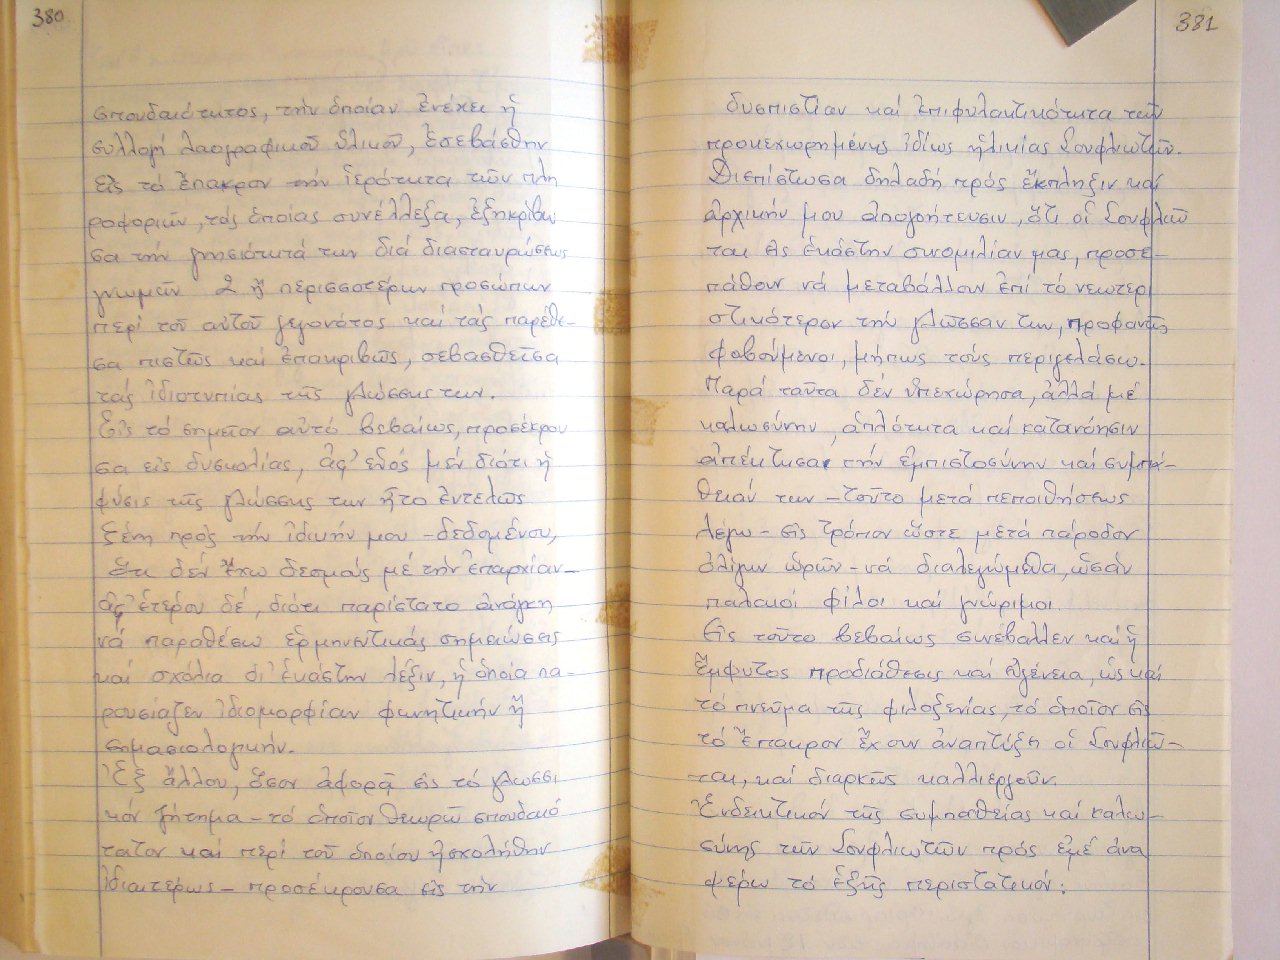 380
σπουδαιότητος, τήν ὁποίαν ἐνέχει ἡ
συλλογή λαογραφικοῦ ὑλικοῦ, ἐσεβάσθην
εἰς τό ἔπακρον τήν ἱερότητα τῶν πλη
ροφοριῶν, τάς ὁποίας συνέλεξα, ἐξηκρίβω
σα τήν γνησιότητά των διά διασταυρώσεως
γνωμῶν 2 ἤ περισσοτέρων προσώπων
περί τοῦ αὐτοῦ γεγονότος καί τάς παρέθε-
σα πιστῶς καί ἐπακριβῶς, σεβασθεῖσα
τάς ἰδιοτυπίας τῆς γλώσσης των.
Εἰς τό σημεῖον αὐτό βεβαίως, προσέκρου
σα εἰς δυσκολίας, ἀφ' ἑνός μέν διότι ἡ
φύσις τῆς γλώσσης των ἦτο ἐντελῶς
ξένη πρός τήν ἰδικήν μου - δεδομένου,
ὅτι δέν ἔχω δεσμούς μέ τήν ἐπαρχίαν -
ἀφ' ἑτέρου δέ, διότι παρίστατο ἀνάγκη
νά παραθέσω ἑρμηνευτικάς σημειώσεις
καί σχόλια δι' ἑκάστην λέξιν, ἡ ὁποία πα-
ρουσίαζεν ἰδιομορφίαν φωνητικήν ἤ
σημασιολογικήν.
Ἐξ ἄλλου, ὅσον ἀφορᾷ εἰς τό γλωσσι
κόν ζήτημα - τό ὁποῖον θεωρῶ σπουδαιό
τατον καί περί τοῦ ὁποίου ἠσχολήθην
ἰδιαιτέρως - προσέκρουσα εἰς τήν
381
δυσπιστίαν καί ἐπιφυλακτικότητα τῶν
προκεχωρημένης ἰδίως ἡλικίας Σουφλιωτῶν.
Διεπίστωσα δηλαδή πρός ἔκπληξιν καί
ἀρχικήν μου ἀπογοήτευσιν, ὅτι οἱ Σουφλιῶ
ται εἰς ἑκάστην συνομιλίαν μας, προσε-
πάθουν νά μεταβάλλουν ἐπί τό νεωτερι
στικότερον τήν γλῶσσαν των, προφανῶς
φοβούμενοι, μήπως τούς περιγελάσω.
Παρά ταῦτα δέν ὑπεχώρησα, ἀλλά μέ
καλωσύνην, ἁπλότητα καί κατανόησιν
ἀπέκτησα τήν ἐμπιστοσύνην καί συμπά-
θειάν των - τοῦτο μετά πεποιθήσεως
λέγω - εἰς τρόπον ὥστε μετά πάροδον
ὀλίγων ὡρῶν - νά διαλεγώμεθα, ὡσάν
παλαιοί φίλοι καί γνώριμοι.
Εἰς τοῦτο βεβαίως συνέβαλλεν καί ἡ
ἔμφυτος προδιάθεσις καί εὐγένεια, ὡς καί
τό πνεῦμα τῆς φιλοξενίας, τό ὁποῖον εἰς
τό ἔπακρον ἔχουν ἀναπτύξη οἱ Σουφλιῶ-
ται, καί διαρκῶς καλλιεργοῦν.
Ἐνδεικτικόν τῆς συμπαθείας καί καλω-
σύνης τῶν Σουφλιωτῶν πρός ἐμέ ἀνα
φέρω τό ἑξῆς περιστατικόν: